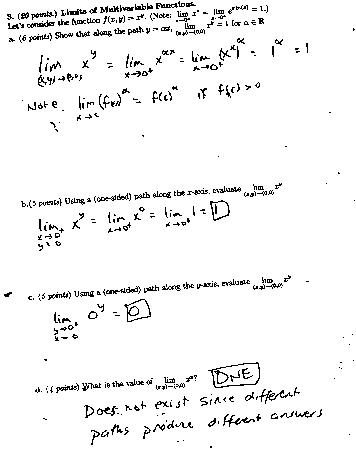 3. (20 points) Limits of Multivariable Functions.
Let's consider the function f(x, y) = x^y. (Note: lim x^x = lim e^{x ln(x)} = 1.)
a. (6 points) Show that along the path y = αx, lim_{(x,y)→(0,0)} x^y = 1 for α ∈ ℝ
lim_{(x,y)→(0,0)} x^y = lim_{x→0⁺} x^{αx} = lim_{x→0⁺} (x^x)^α = 1^α = 1
Note lim_{x→c} (f(x))^α = f(c)^α if f(c) > 0
b. (5 points) Using a (one-sided) path along the x-axis, evaluate lim_{(x,y)→(0,0)} x^y
lim_{x→0⁺ y=0} x^y = lim_{x→0⁺} x^0 = lim_{x→0⁺} 1 = 1
c. (5 points) Using a (one-sided) path along the y-axis, evaluate lim_{(x,y)→(0,0)} x^y
lim_{y→0⁺ x=0} 0^y = 0
d. (4 points) What is the value of lim_{(x,y)→(0,0)} x^y? DNE
Does not exist since different
paths produce different answers